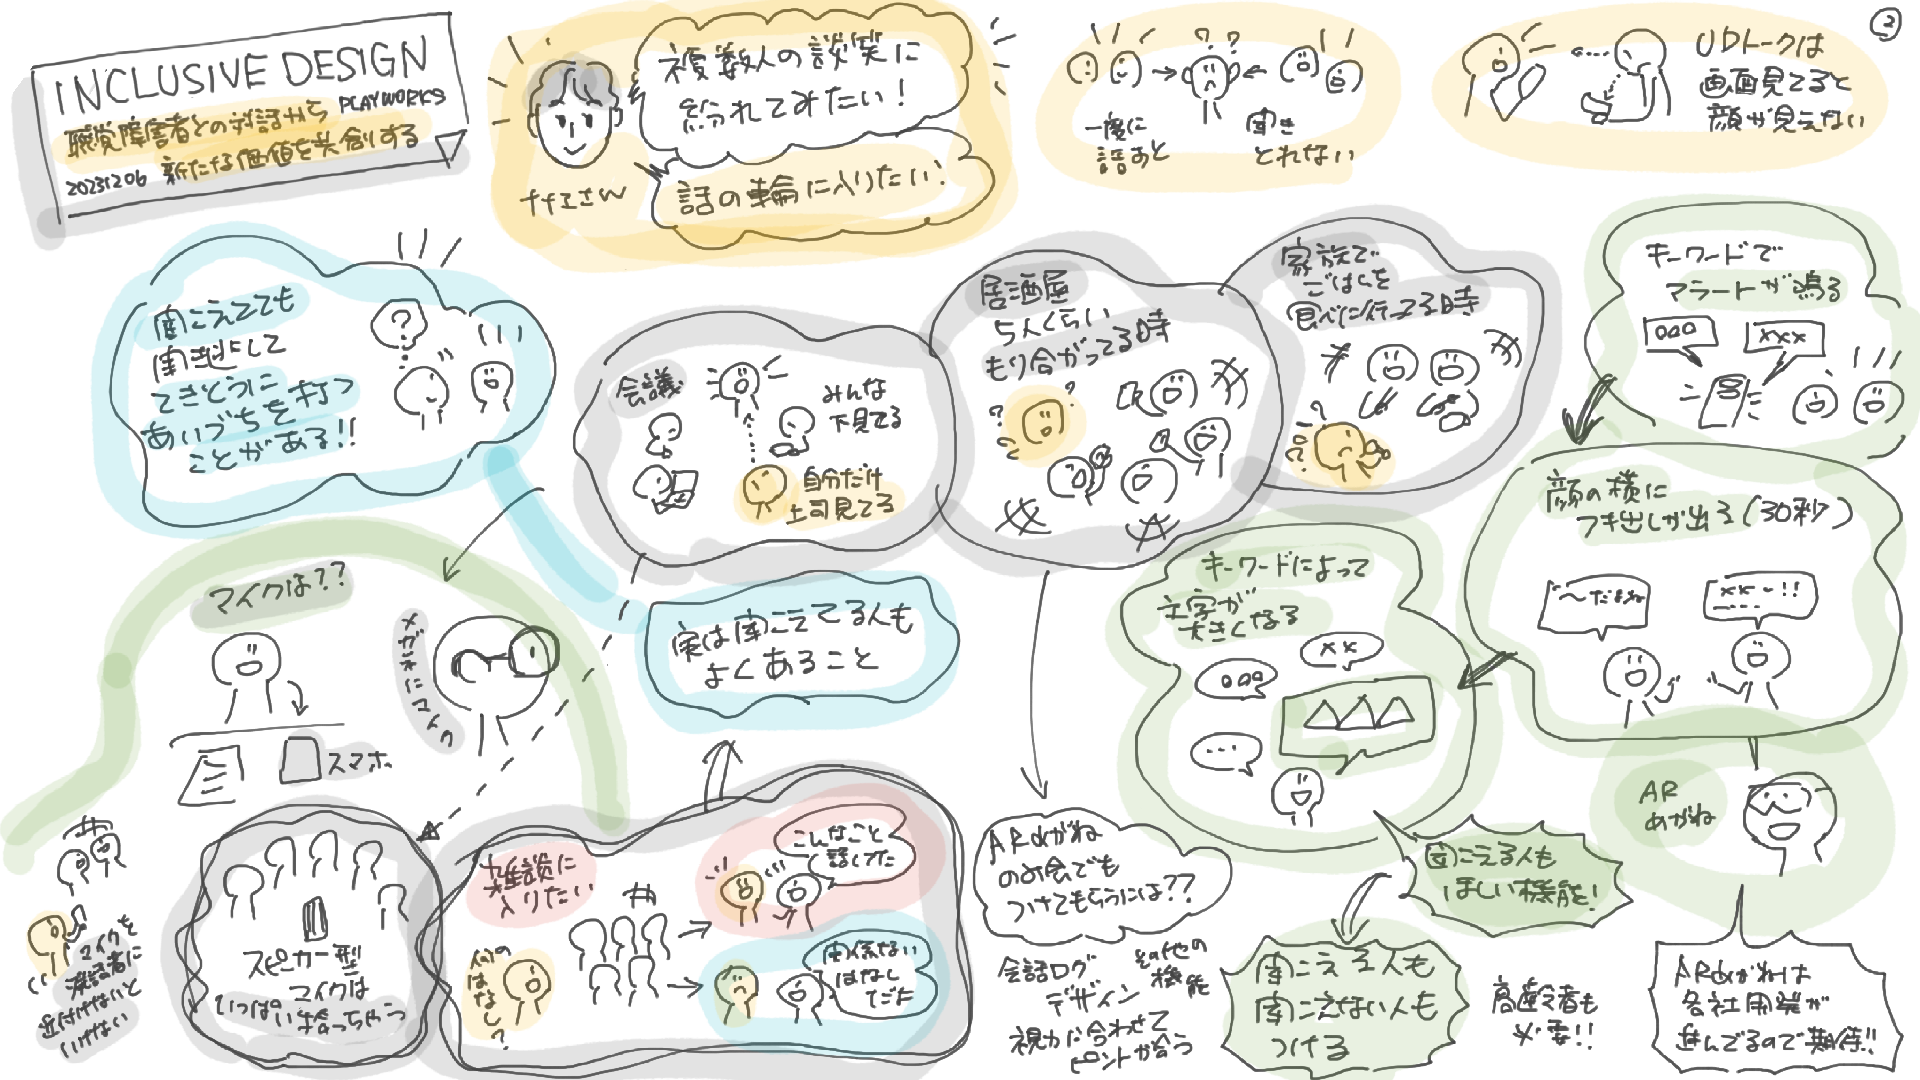 INCLUSIVE DESIGN
PLAYWORKS
聴覚障害者との対話から
新たな価値を共創する
20231206
ナナエさん
複数人の談笑に
紛れてみたい!
話の輪に入りたい!
一度に
話すと
聞き
とれない
UDトークは
画面見てると
顔が見えない
2
聞こえてても
聞き逃して
てきとうに
あいづちを打つ
ことがある!!
?
会議
みんな
下見てる
自分だけ
上司見てる
居酒屋
5人くらい
もり合がってる時
家族で
ごはんを
食べに行ってる時
キーワードで
アラートが鳴る
○○○
×××
顔の横に
フキ出しが出る(30秒)
〜だよね
××〜!!
キーワードによって
文字が
大きくなる
○○○
××
・・・
マイクは??
スマホ
メガネにマイク
実は聞こえてる人も
よくあること
AR
めがね
マイクを
発話者に
近付けないと
いけない
スピーカー型
マイクは
いっぱい拾っちゃう
雑談に
入りたい
何の
はなし?
こんなこと
話してた
関係ない
はなし
てだた
ARめがね
のみ会でも
つけてもらうには??
会話ログ
デザイン
その他の
機能
視力に合わせて
ピントが合う
聞こえる人も
ほしい機能!
聞こえる人も
聞こえない人も
つける
高齢者も
必要!!
ARめがねは
各社開発が
進んでるので期待!!